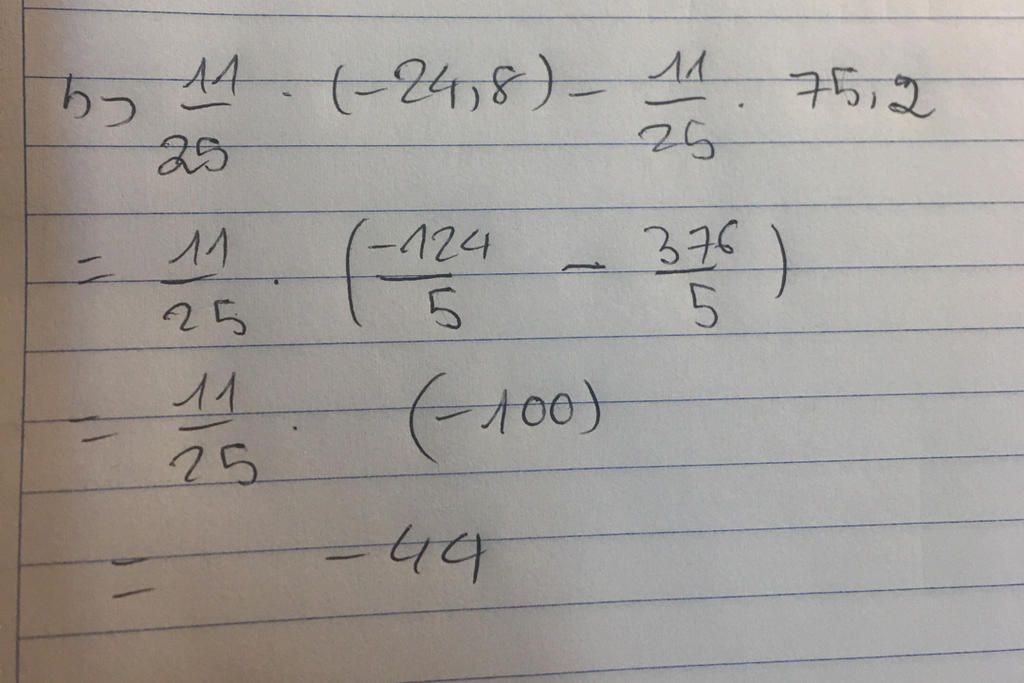 b) 11/25 · (-24,8) - 11/25 · 75,2
= 11/25 · (-124/5 - 376/5)
= 11/25 · (-100)
= -44